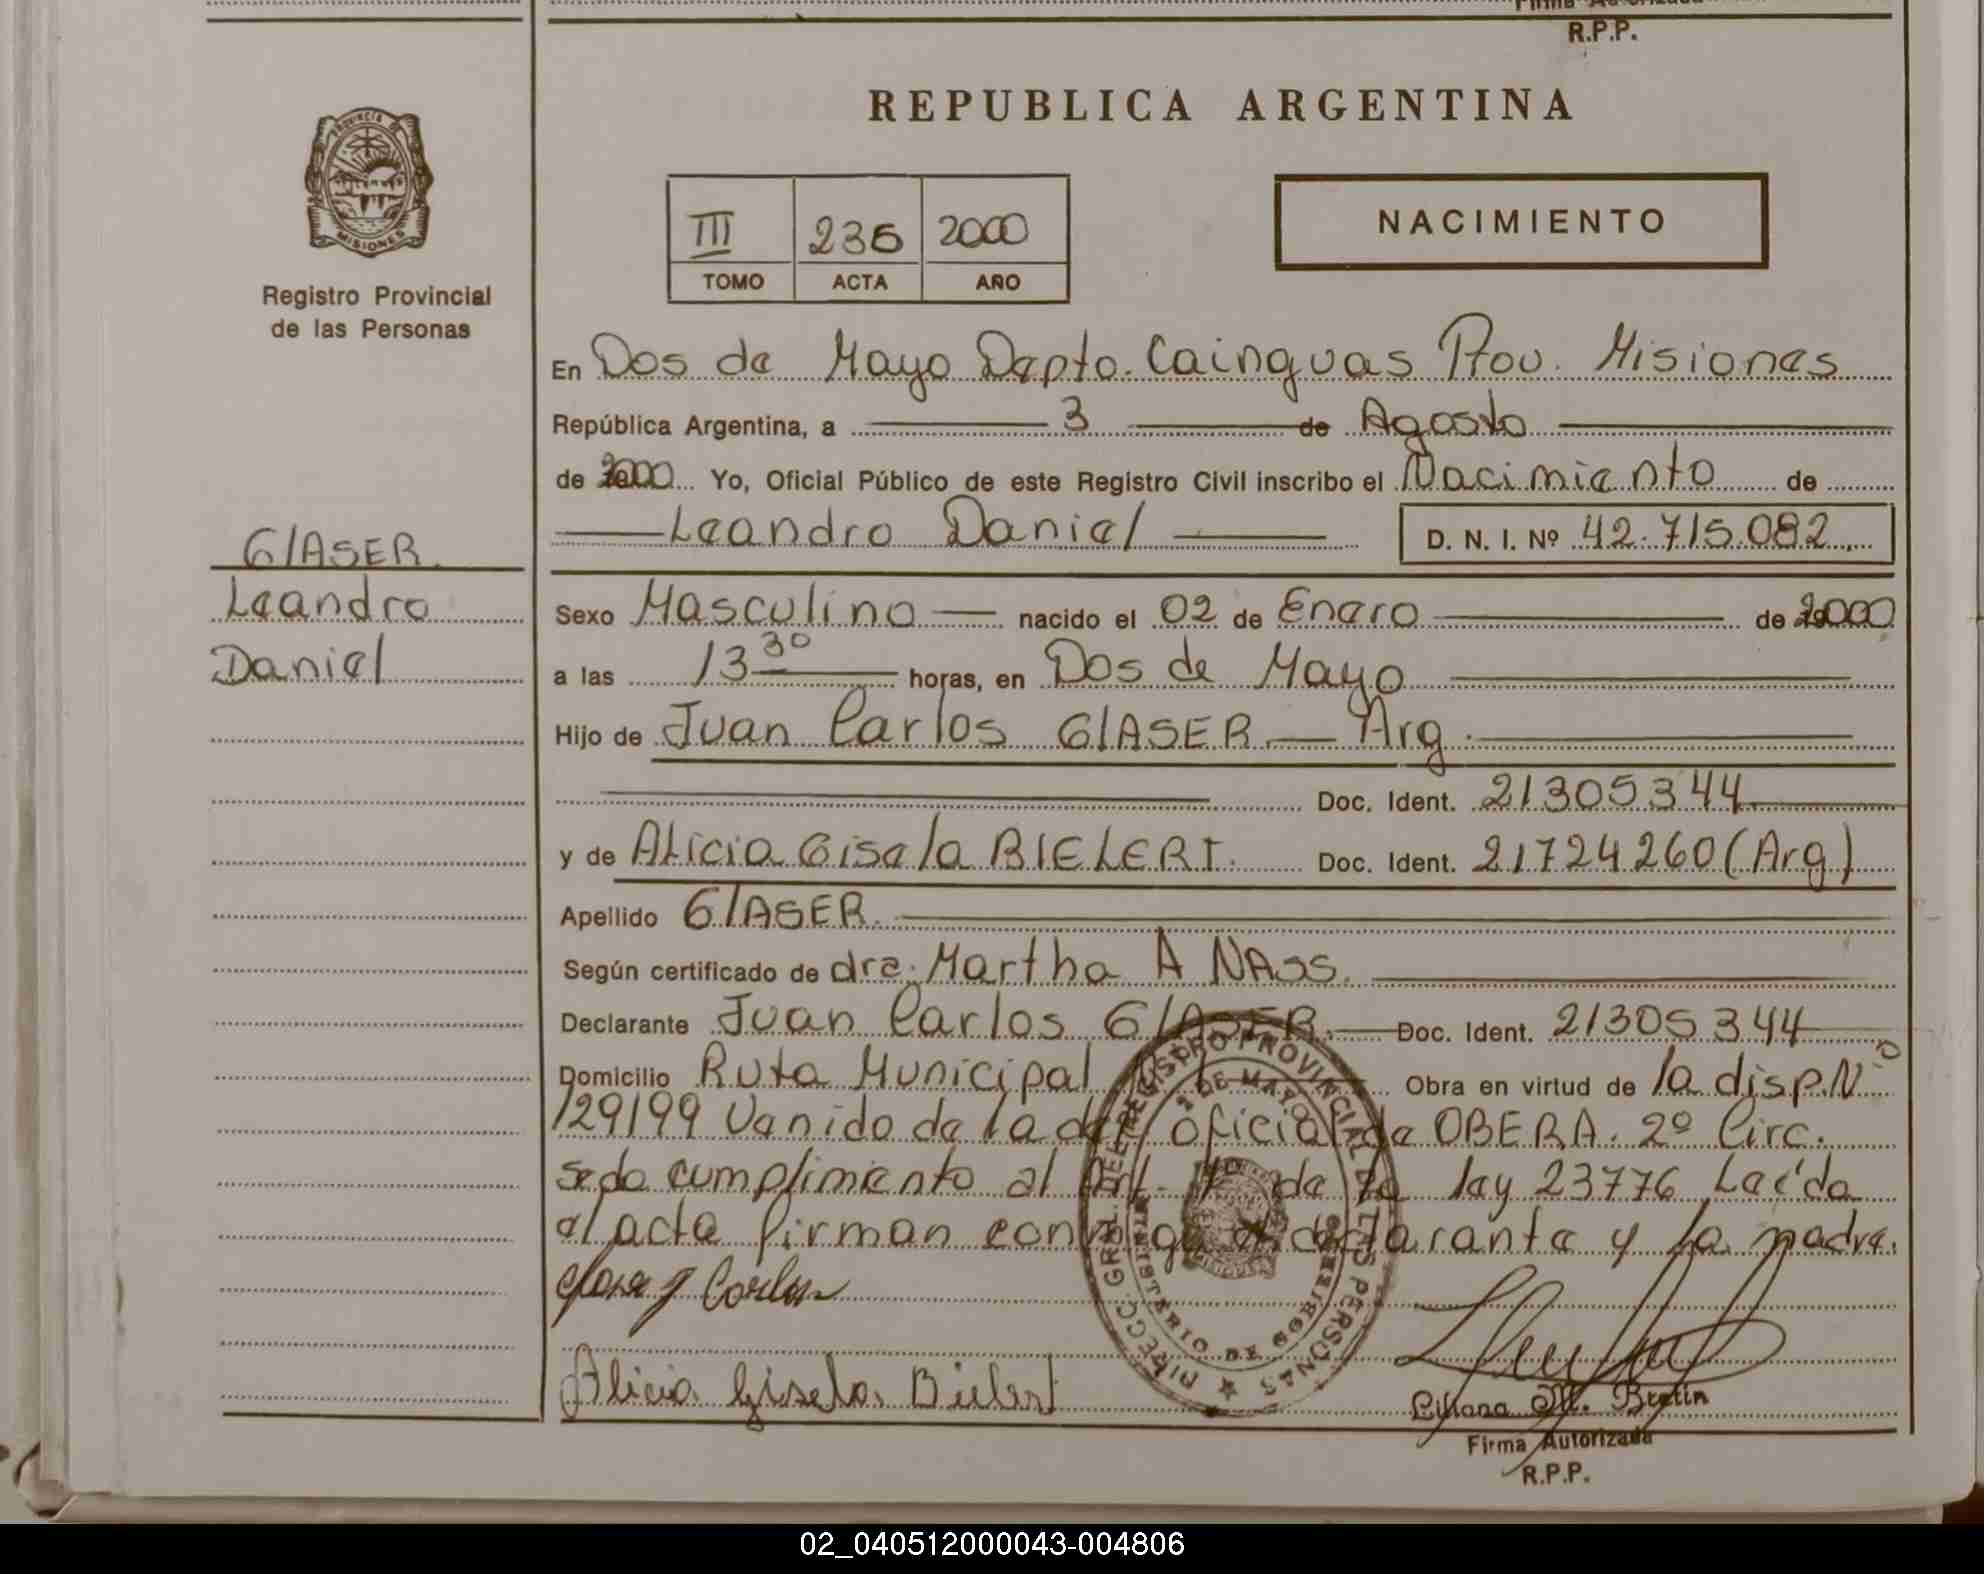 Firma Autorizada
R.P.P.
REPUBLICA ARGENTINA
PROVINCIA DE
MISIONES
Registro Provincial
de las Personas
III 236 2000
TOMO ACTA AÑO
NACIMIENTO
En Dos de Mayo Depto. Cainguas Prov. Misiones
República Argentina, a 3 de Agosto
de 2000 Yo, Oficial Público de este Registro Civil inscribo el Nacimiento de
Leandro Daniel D. N. I. Nº 42.715.082
GlASER
Leandro
Daniel
Sexo Masculino nacido el 02 de Enero de 2000
a las 13 30 horas, en Dos de Mayo
Hijo de Juan Carlos GlASER - Arg.
Doc. Ident. 21305344
y de Alicia Gisela BIELERT. Doc. Ident. 21724260 (Arg)
Apellido GlASER.
Según certificado de dra. Martha A NASS.
Declarante Juan Carlos GlASER. Doc. Ident. 21305344
Domicilio Ruta Municipal Obra en virtud de la disp. Nº
129/99 Venido de la del oficial de OBERA. 2º Circ.
se da cumplimiento al Art. de la ley 23776 Leída
el acta firman conmigo el declarante y la madre.
Alicia Gisela Bielert
REGISTRO PROVINCIAL DE LAS PERSONAS
2 DE MAYO
MINISTERIO DE GOBIERNO
DIRECC. GRAL. DEL
Liliana M. Brettin
Firma Autorizada
R.P.P.
02_040512000043-004806